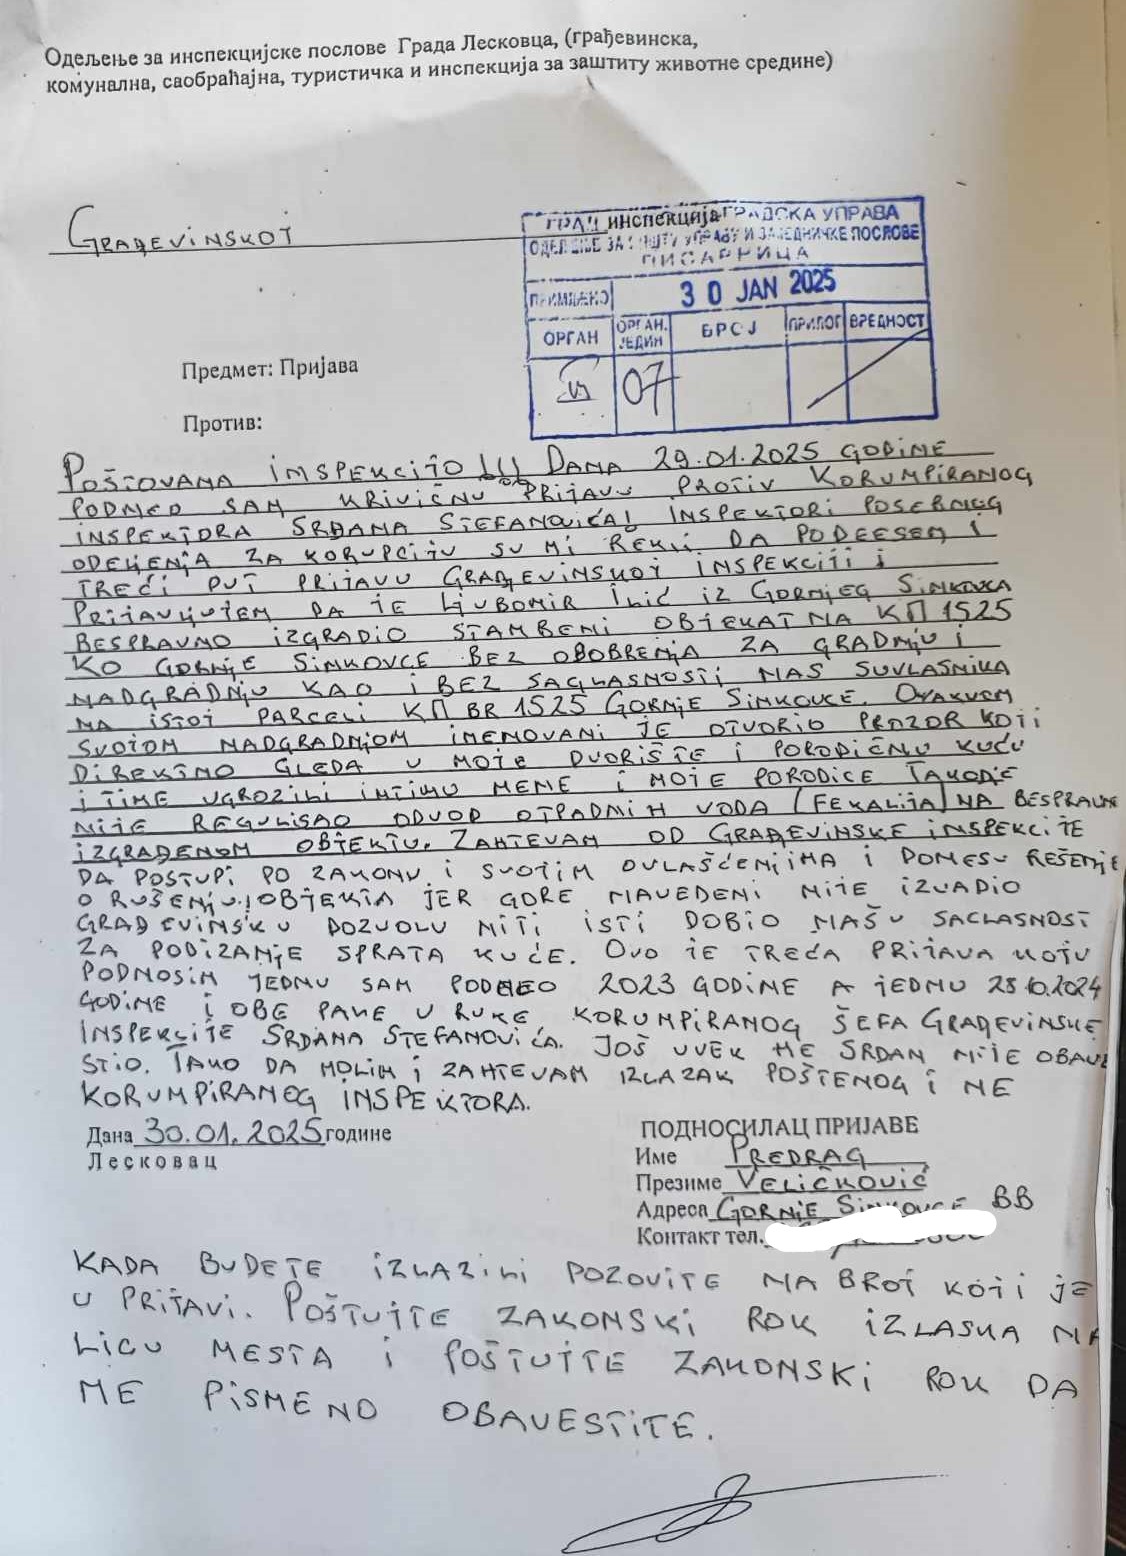 Одељење за инспекцијске послове Града Лесковца, (грађевинска,
комунална, саобраћајна, туристичка и инспекција за заштиту животне средине)
GRAĐEVINSKOJ инспекција
ГРАДСКА УПРАВА
ОДЕЉЕЊЕ ЗА УПРАВУ И ЗАЈЕДНИЧКЕ ПОСЛОВЕ
ПИСАРНИЦА
ПРИМЉЕНО 30 JAN 2025
ОРГАН ОРГАН. ЈЕДИН БРОЈ ПРИЛОГ ВРЕДНОСТ
07
Предмет: Пријава
Против:
POŠTOVANA INSPEKCIJO !!! DANA 29.01.2025 GODINE
PODNEO SAM KRIVIČNU PRIJAVU PROTIV KORUMPIRANOG
INSPEKTORA SRĐANA STEFANOVIĆA! INSPEKTORI POSEBNOG
ODELJENJA ZA KORUPCIJU SU MI REKLI DA PODNESEM I
TREĆI PUT PRIJAVU GRAĐEVINSKOJ INSPEKCIJI i
PRIJAVLJUJEM DA JE LJUBOMIR ILIĆ IZ GORNJEG SINKOVCA
BESPRAVNO IZGRADIO STAMBENI OBJEKAT NA КП 1525
KO GORNJE SINKOVCE BEZ ODOBRENJA ZA GRADNJU I
NADGRADNJU KAO I BEZ SAGLASNOSTI NAS SUVLASNIKA
NA ISTOJ PARCELI КП BR 1525 GORNJE SINKOVCE. OVAKVOM
SVOJOM NADGRADNJOM IMENOVANI JE OTVORIO PROZOR KOJI
DIREKTNO GLEDA U MOJE DVORIŠTE I PORODIČNU KUĆU
I TIME UGROZILI INTIMU MENE I MOJE PORODICE TAKOĐE
NIJE REGULISAO ODVOD OTPADNIH VODA (FEKALIJA) NA BESPRAVNO
IZGRAĐENOM OBJEKTU. ZAHTEVAM OD GRAĐEVINSKE INSPEKCIJE
DA POSTUPI PO ZAKONU I SVOJIM OVLAŠĆENJIMA I DONESU REŠENJE
O RUŠENJU OBJEKTA JER GORE NAVEDENI NIJE IZVADIO
GRAĐEVINSKU DOZVOLU NITI ISTI DOBIO NAŠU SAGLASNOST
ZA PODIZANJE SPRATA KUĆE. OVO JE TREĆA PRIJAVA KOJU
PODNOSIM JEDNU SAM PODNEO 2023 GODINE A JEDNU 28.10.2024
GODINE I OBE PALE U RUKE KORUMPIRANOG ŠEFA GRAĐEVINSKE
INSPEKCIJE SRĐANA STEFANOVIĆA. JOŠ UVEK ME SRĐAN NIJE OBAVE
STIO. TAKO DA MOLIM I ZAHTEVAM IZLAZAK POŠTENOG I NE
KORUMPIRANOG INSPEKTORA.
Дана 30.01.2025 године
Лесковац
ПОДНОСИЛАЦ ПРИЈАВЕ
Име PREDRAG
Презиме VELIČKOVIĆ
Адреса GORNJE SINKOVCE BB
Контакт тел.
KADA BUDETE IZLAZILI POZOVITE NA BROJ KOJI JE
U PRIJAVI. POŠTUJTE ZAKONSKI ROK IZLASKA NA
LICU MESTA I POŠTUJTE ZAKONSKI ROK DA
ME PISMENO OBAVESTITE.